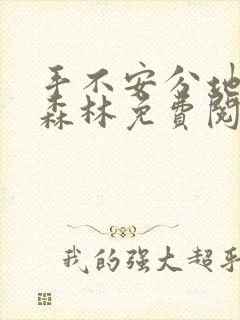 手不安分地
森林免费阅
我的强大超乎